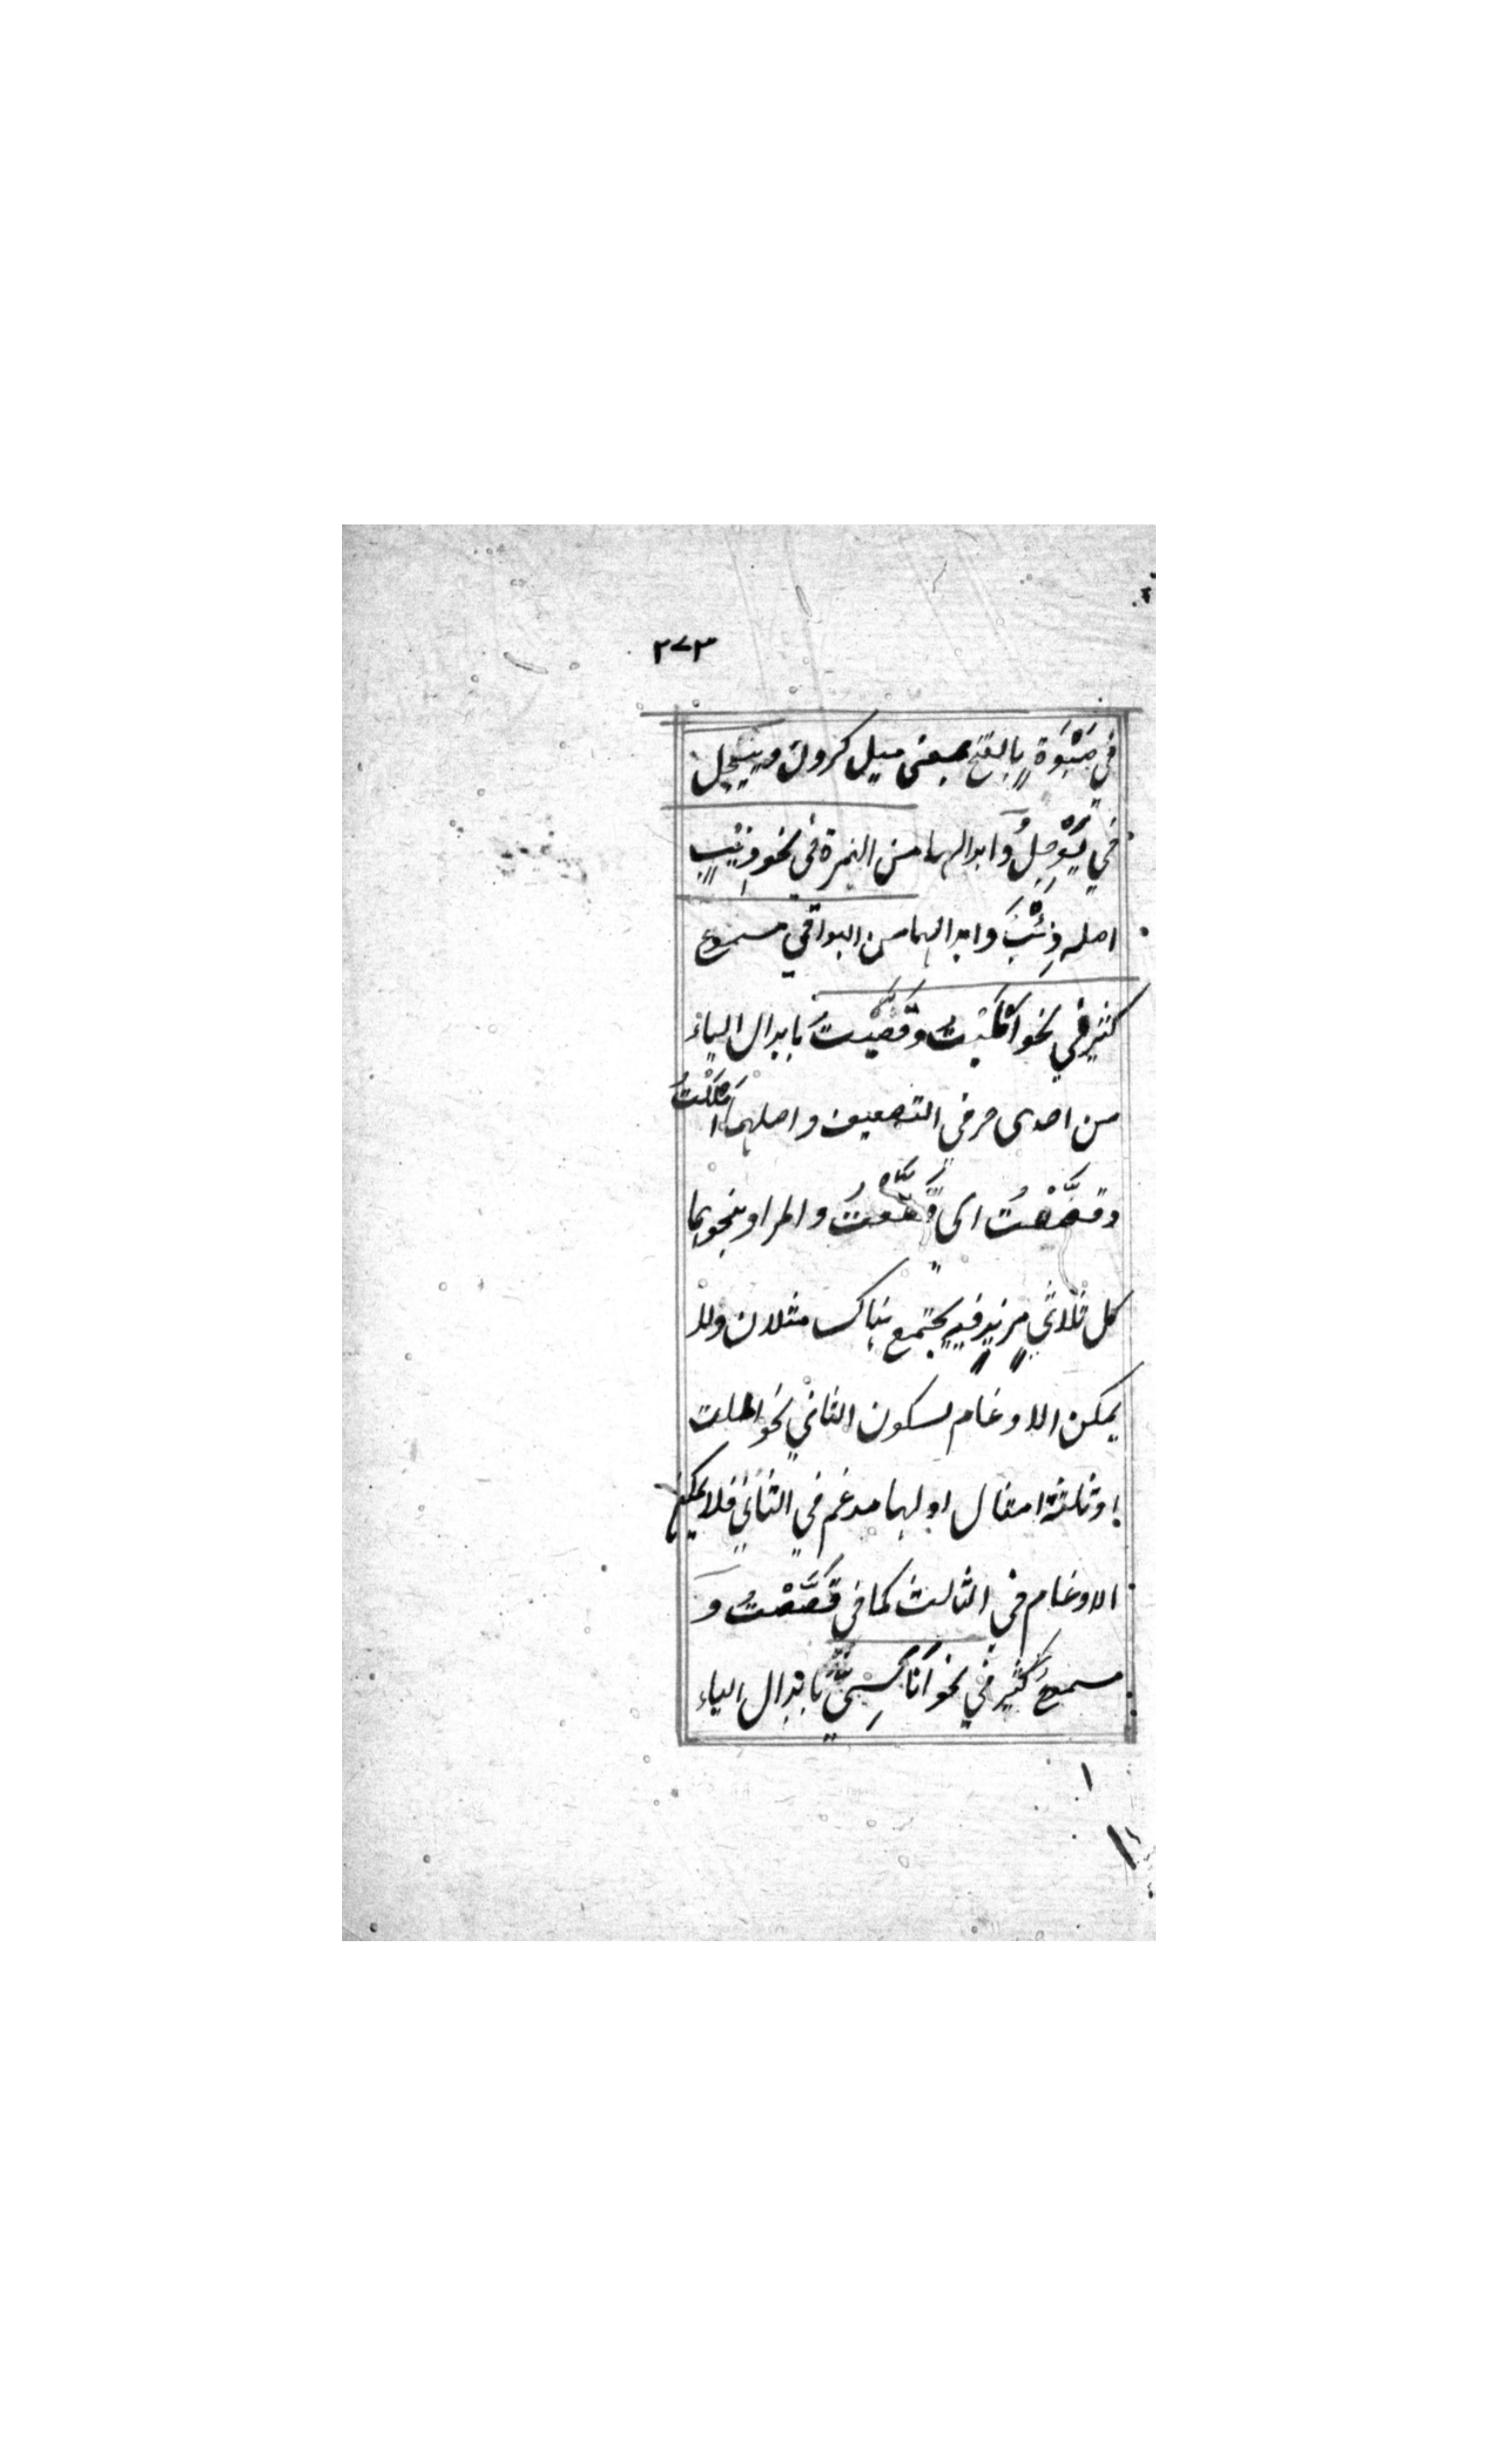 ٢٧٣
في صَبْوَة بالفتح بمعنى ميل كرون وييجل
في يَوْجِلُ وابدالها من الهمزة في نحو ذيب
اصله ذِئْبَ وابدالهما من البواقي مسموع
كثير في نحو امليت وقَصَّيتُ بابدال الياء
من احدى حرفي التضعيف واصلهما امْلَلْتُ
وقصَّصْتُ اي والمراد بنحوهما
كل ثلاثي مزيد فيه يجتمع هناك مثلان ولا
يمكن الادغام لسكون الثاني نحو امللت
او ثلثة امثال اولها مدغم في الثاني فلا يمكن
الادغام في الثالث كما في قَصَّصْتُ وَ
مسموعُ كَثِير في نحو اَنَاسِيَّ بابدال الياء